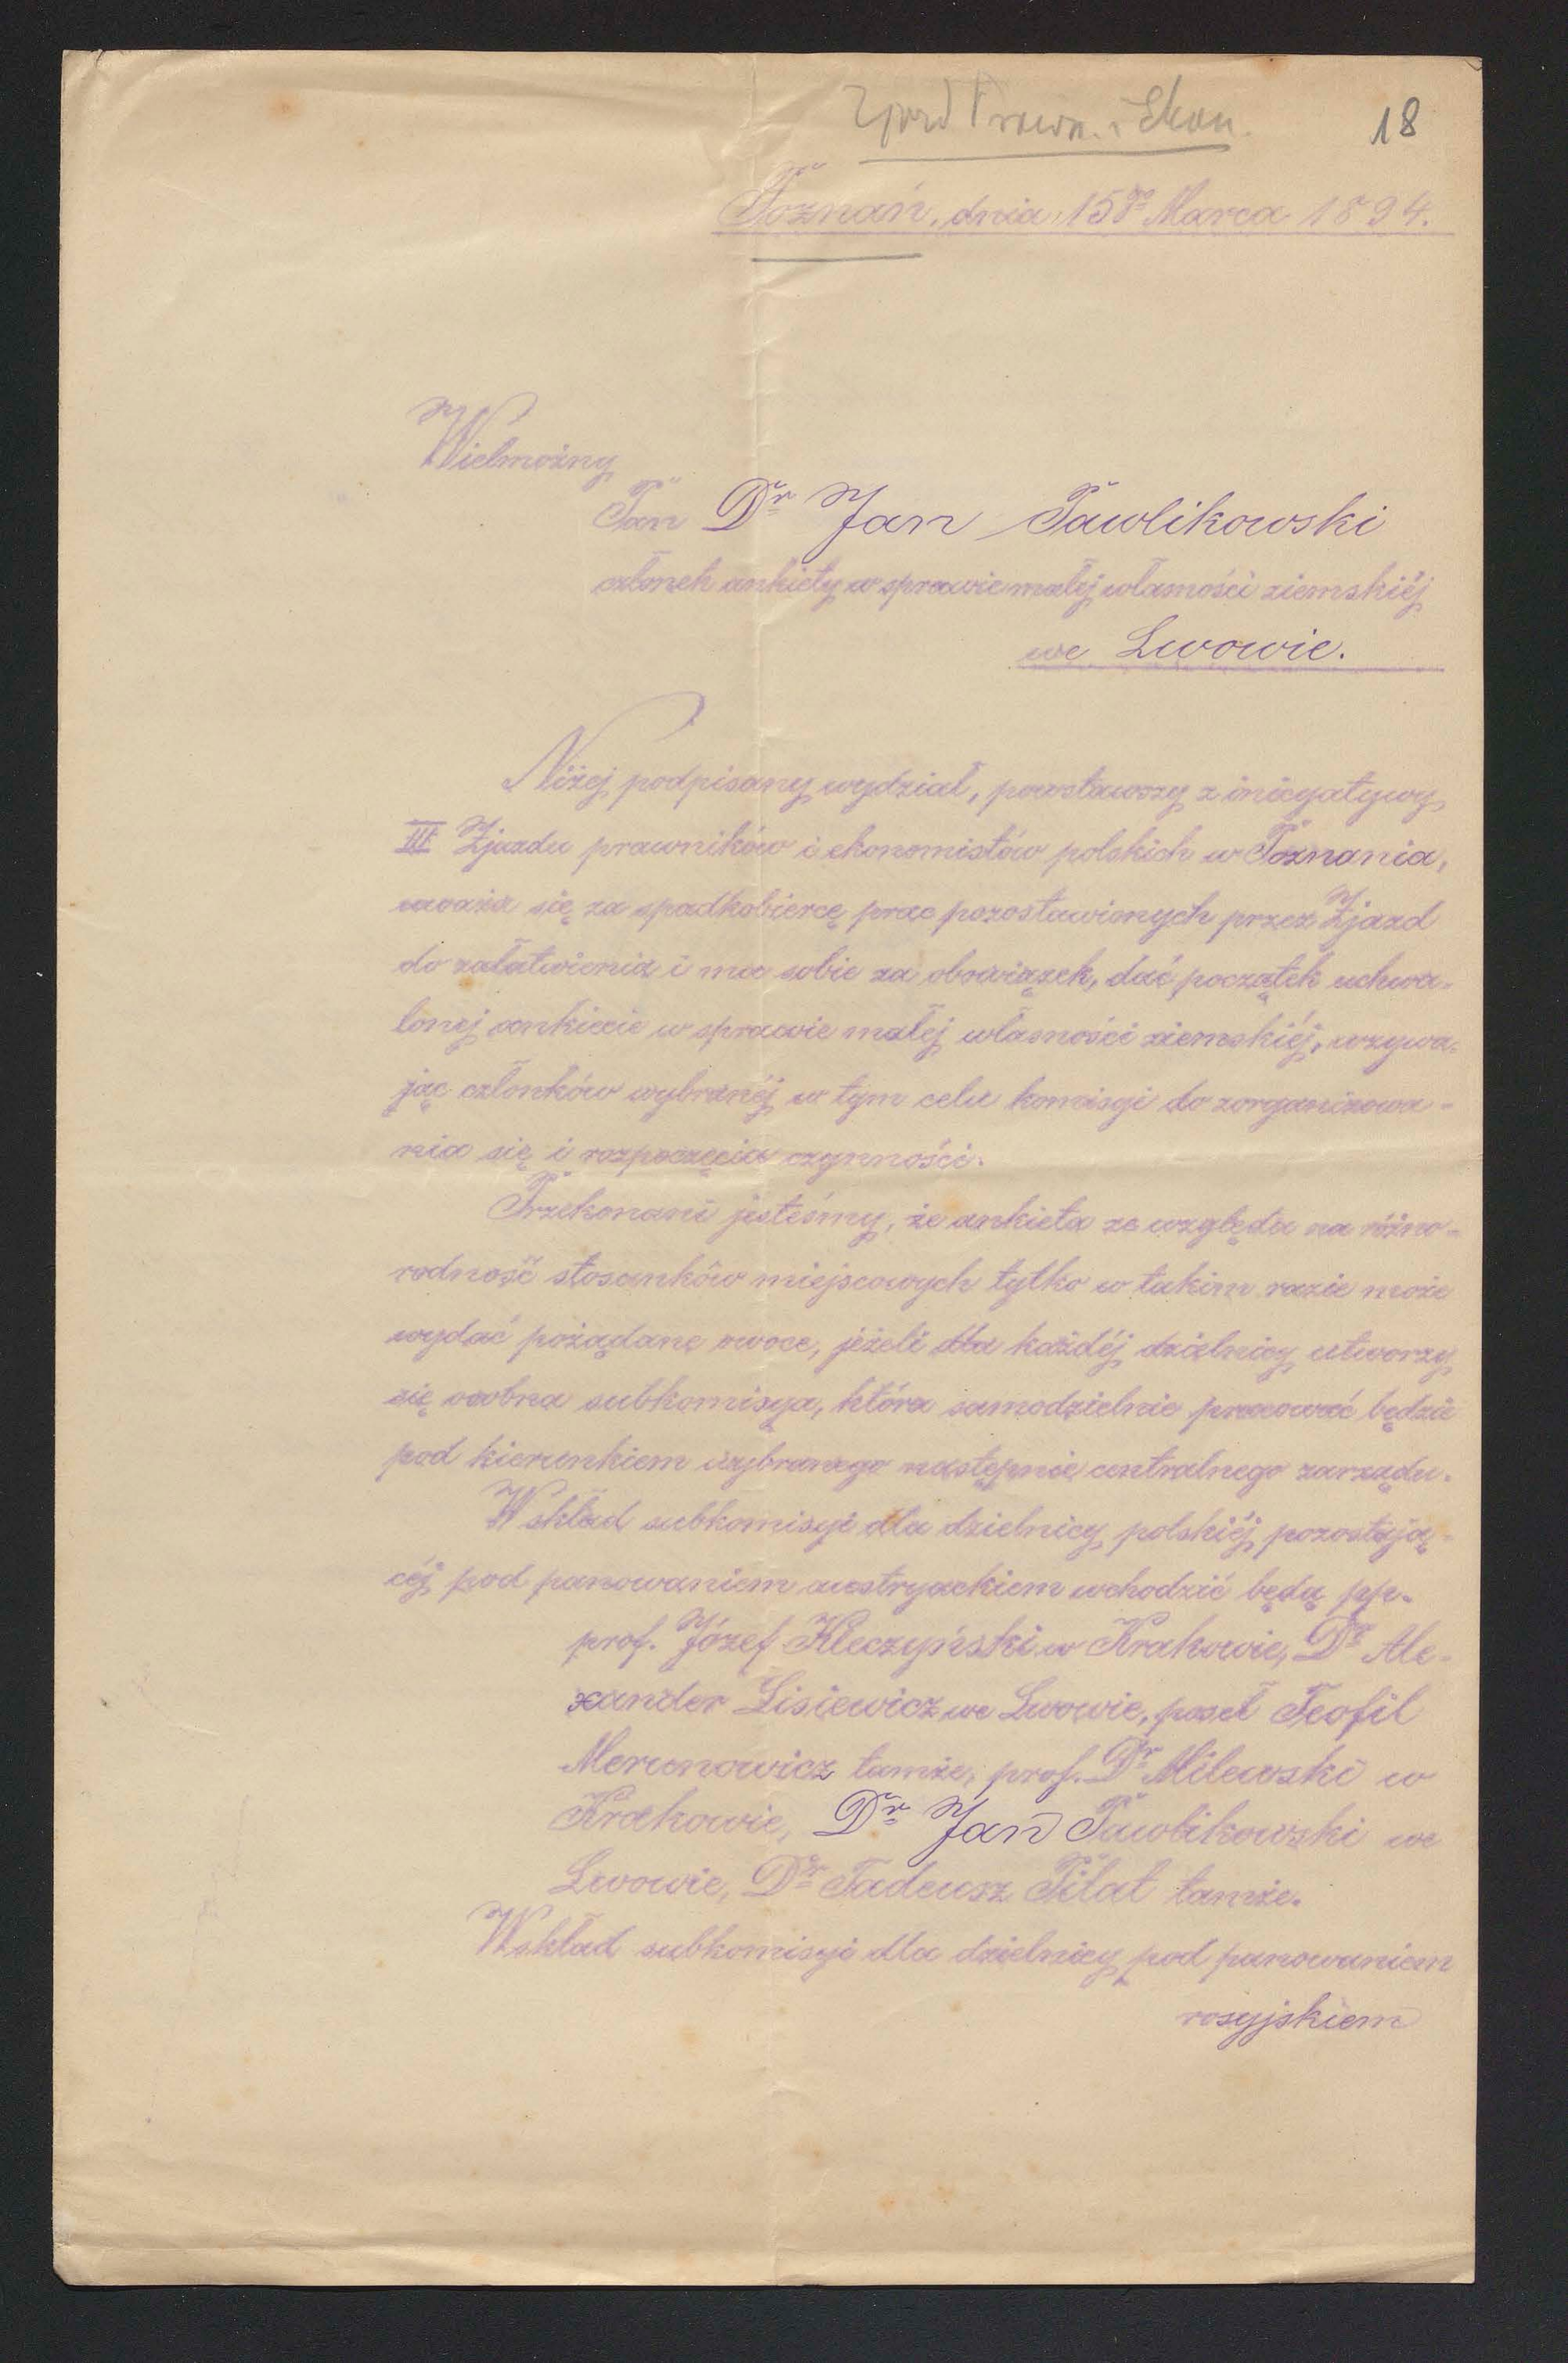 Zjazd Prawn. i Ekon.
18
Poznań, dnia 15go Marca 1894.
Wielmożny
Pan Dr Jan Pawlikowski
członek ankiety w sprawie małej własności ziemskiéj
we Lwowie.
Niżej podpisany wydział, powstawszy z inicyatywy
III Zjazdu prawników i ekonomistów polskich w Poznaniu,
uważa się za spadkobiercę prac pozostawionych przez Zjazd
do załatwienia i ma sobie za obowiązek, dać początek uchwa-
lonej ankiecie w sprawie małej własności ziemskiéj, wzywa-
jąc członków wybranéj w tym celu komisyi do zorganizowa-
nia się i rozpoczęcia czynności.
Przekonani jesteśmy, że ankieta ze względu na różno-
rodność stosunków miejscowych tylko w takim razie może
wydać pożądane owoce, jeżeli dla każdéj dzielnicy utworzy
się osobna subkomisya, która samodzielnie pracować będzie
pod kierunkiem wybranego następnie centralnego zarządu.
W skład subkomisyi dla dzielnicy polskiéj pozostają-
céj pod panowaniem austryackiem wchodzić będą pp.
prof. Józef Kleczyński w Krakowie, Dr Ale-
xander Lisiewicz we Lwowie, poseł Teofil
Merunowicz tamże, prof. Dr Milewski w
Krakowie, Dr Jan Pawlikowski we
Lwowie, Dr Tadeusz Pilat tamże.
W skład subkomisyi dla dzielnicy pod panowaniem
rosyjskiem